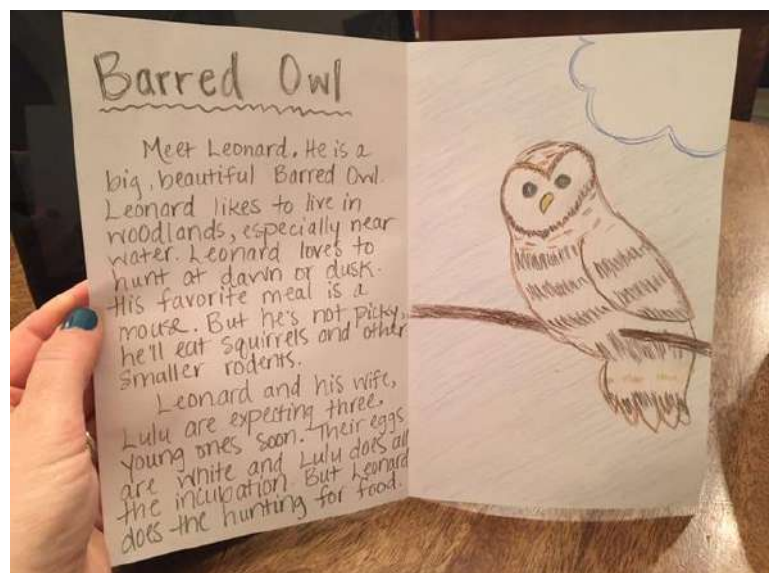 Barred Owl
Meet Leonard. He is a
big, beautiful Barred Owl.
Leonard likes to live in
woodlands, especially near
water. Leonard loves to
hunt at dawn or dusk.
His favorite meal is a
mouse. But he's not picky,
he'll eat squirrels and other
smaller rodents.
Leonard and his wife,
Lulu are expecting three,
young ones soon. Their eggs
are white and Lulu does all
the incubation. But Leonard
does the hunting for food.